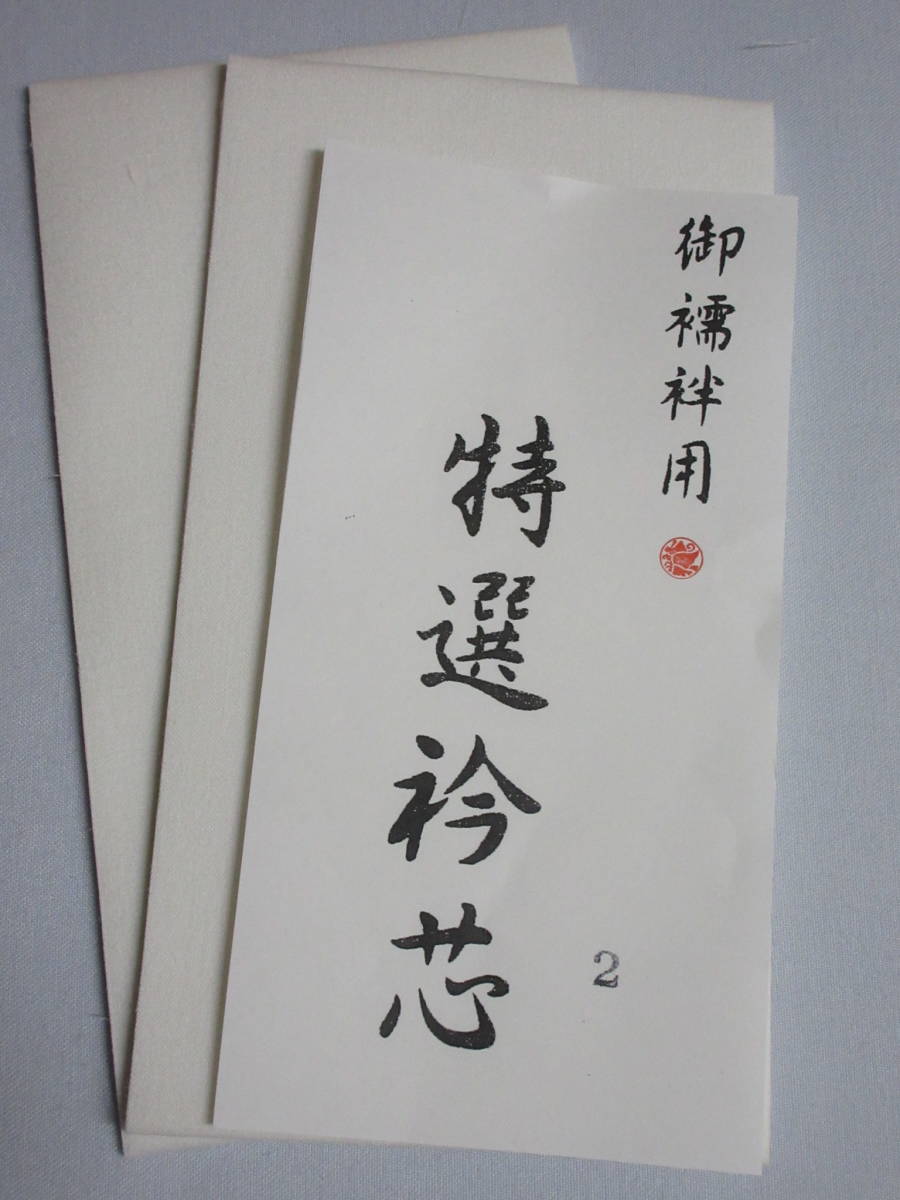 御襦袢用
特選衿芯
2